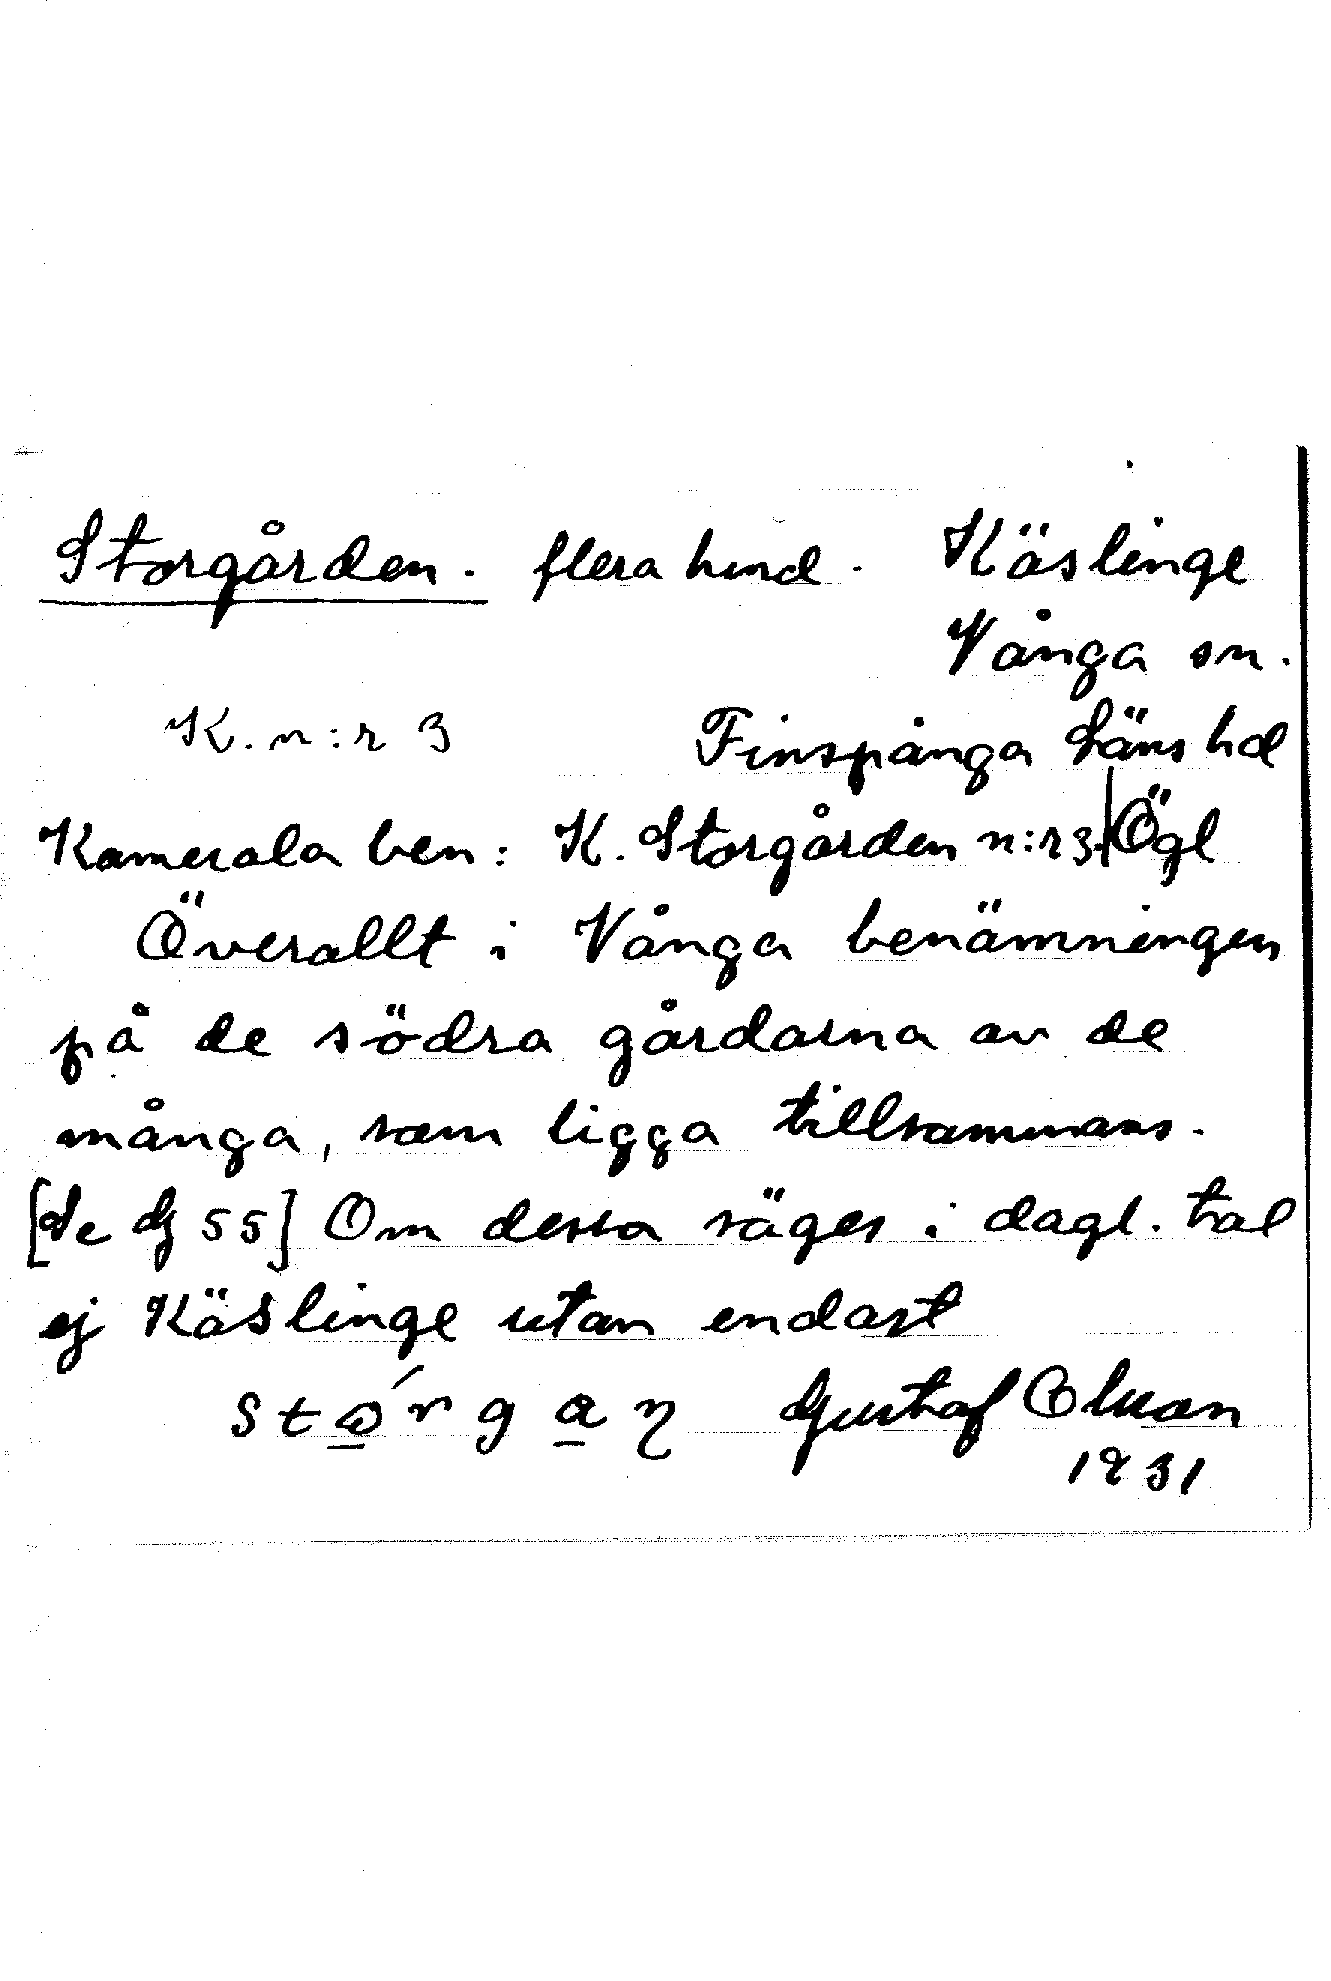 Storgården. flera hemd. Käslinge
Vånga sn.
K. n:r 3 Finspånga Läns hd
Kamerala ben: K. Storgården n:r 3. Ögl
Överallt i Vånga benämningen
på de södra gårdarna av de
många, som ligga tillsammans.
[Se dj 55] Om dessa säges i dagl. tal
ej Käslinge utan endast
Gustaf Olsson
1931